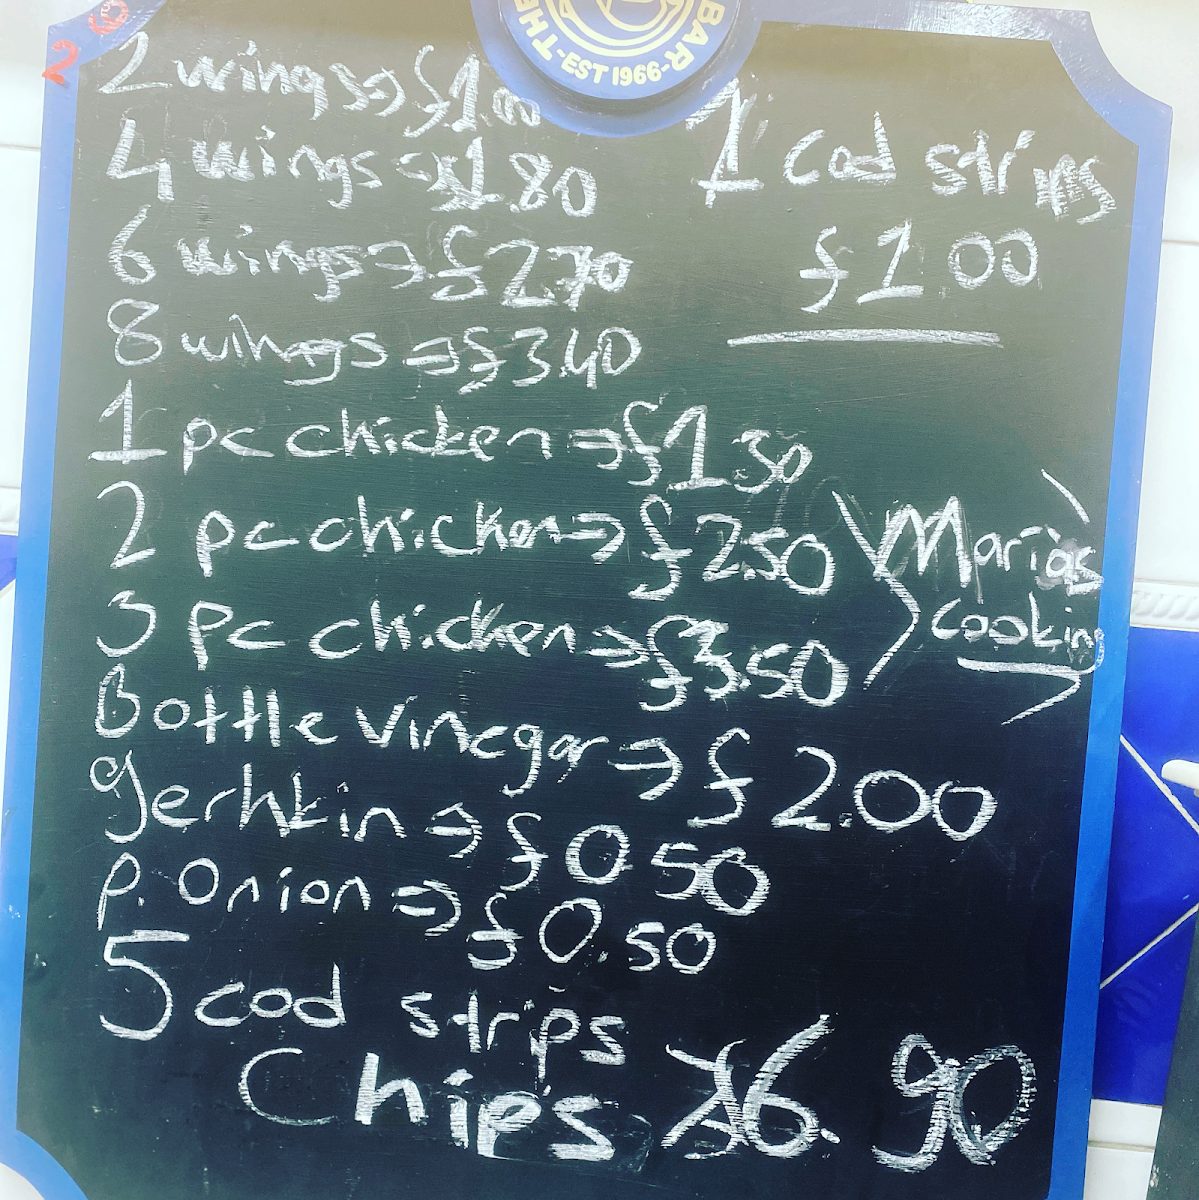 THE BAR
-EST 1966-
2 wings => £1.00
4 wings => £1.80
6 wings => £2.70
8 wings => £3.40
1 pc chicken => £1.30
2 pc chicken => £2.50
3 pc chicken => £3.50
Bottle vinegar => £2.00
gerhkin => £0.50
p. onion => £0.50
5 cod strips
Chips £6.90
1 cod strips
£1 00
Maria's
cooking